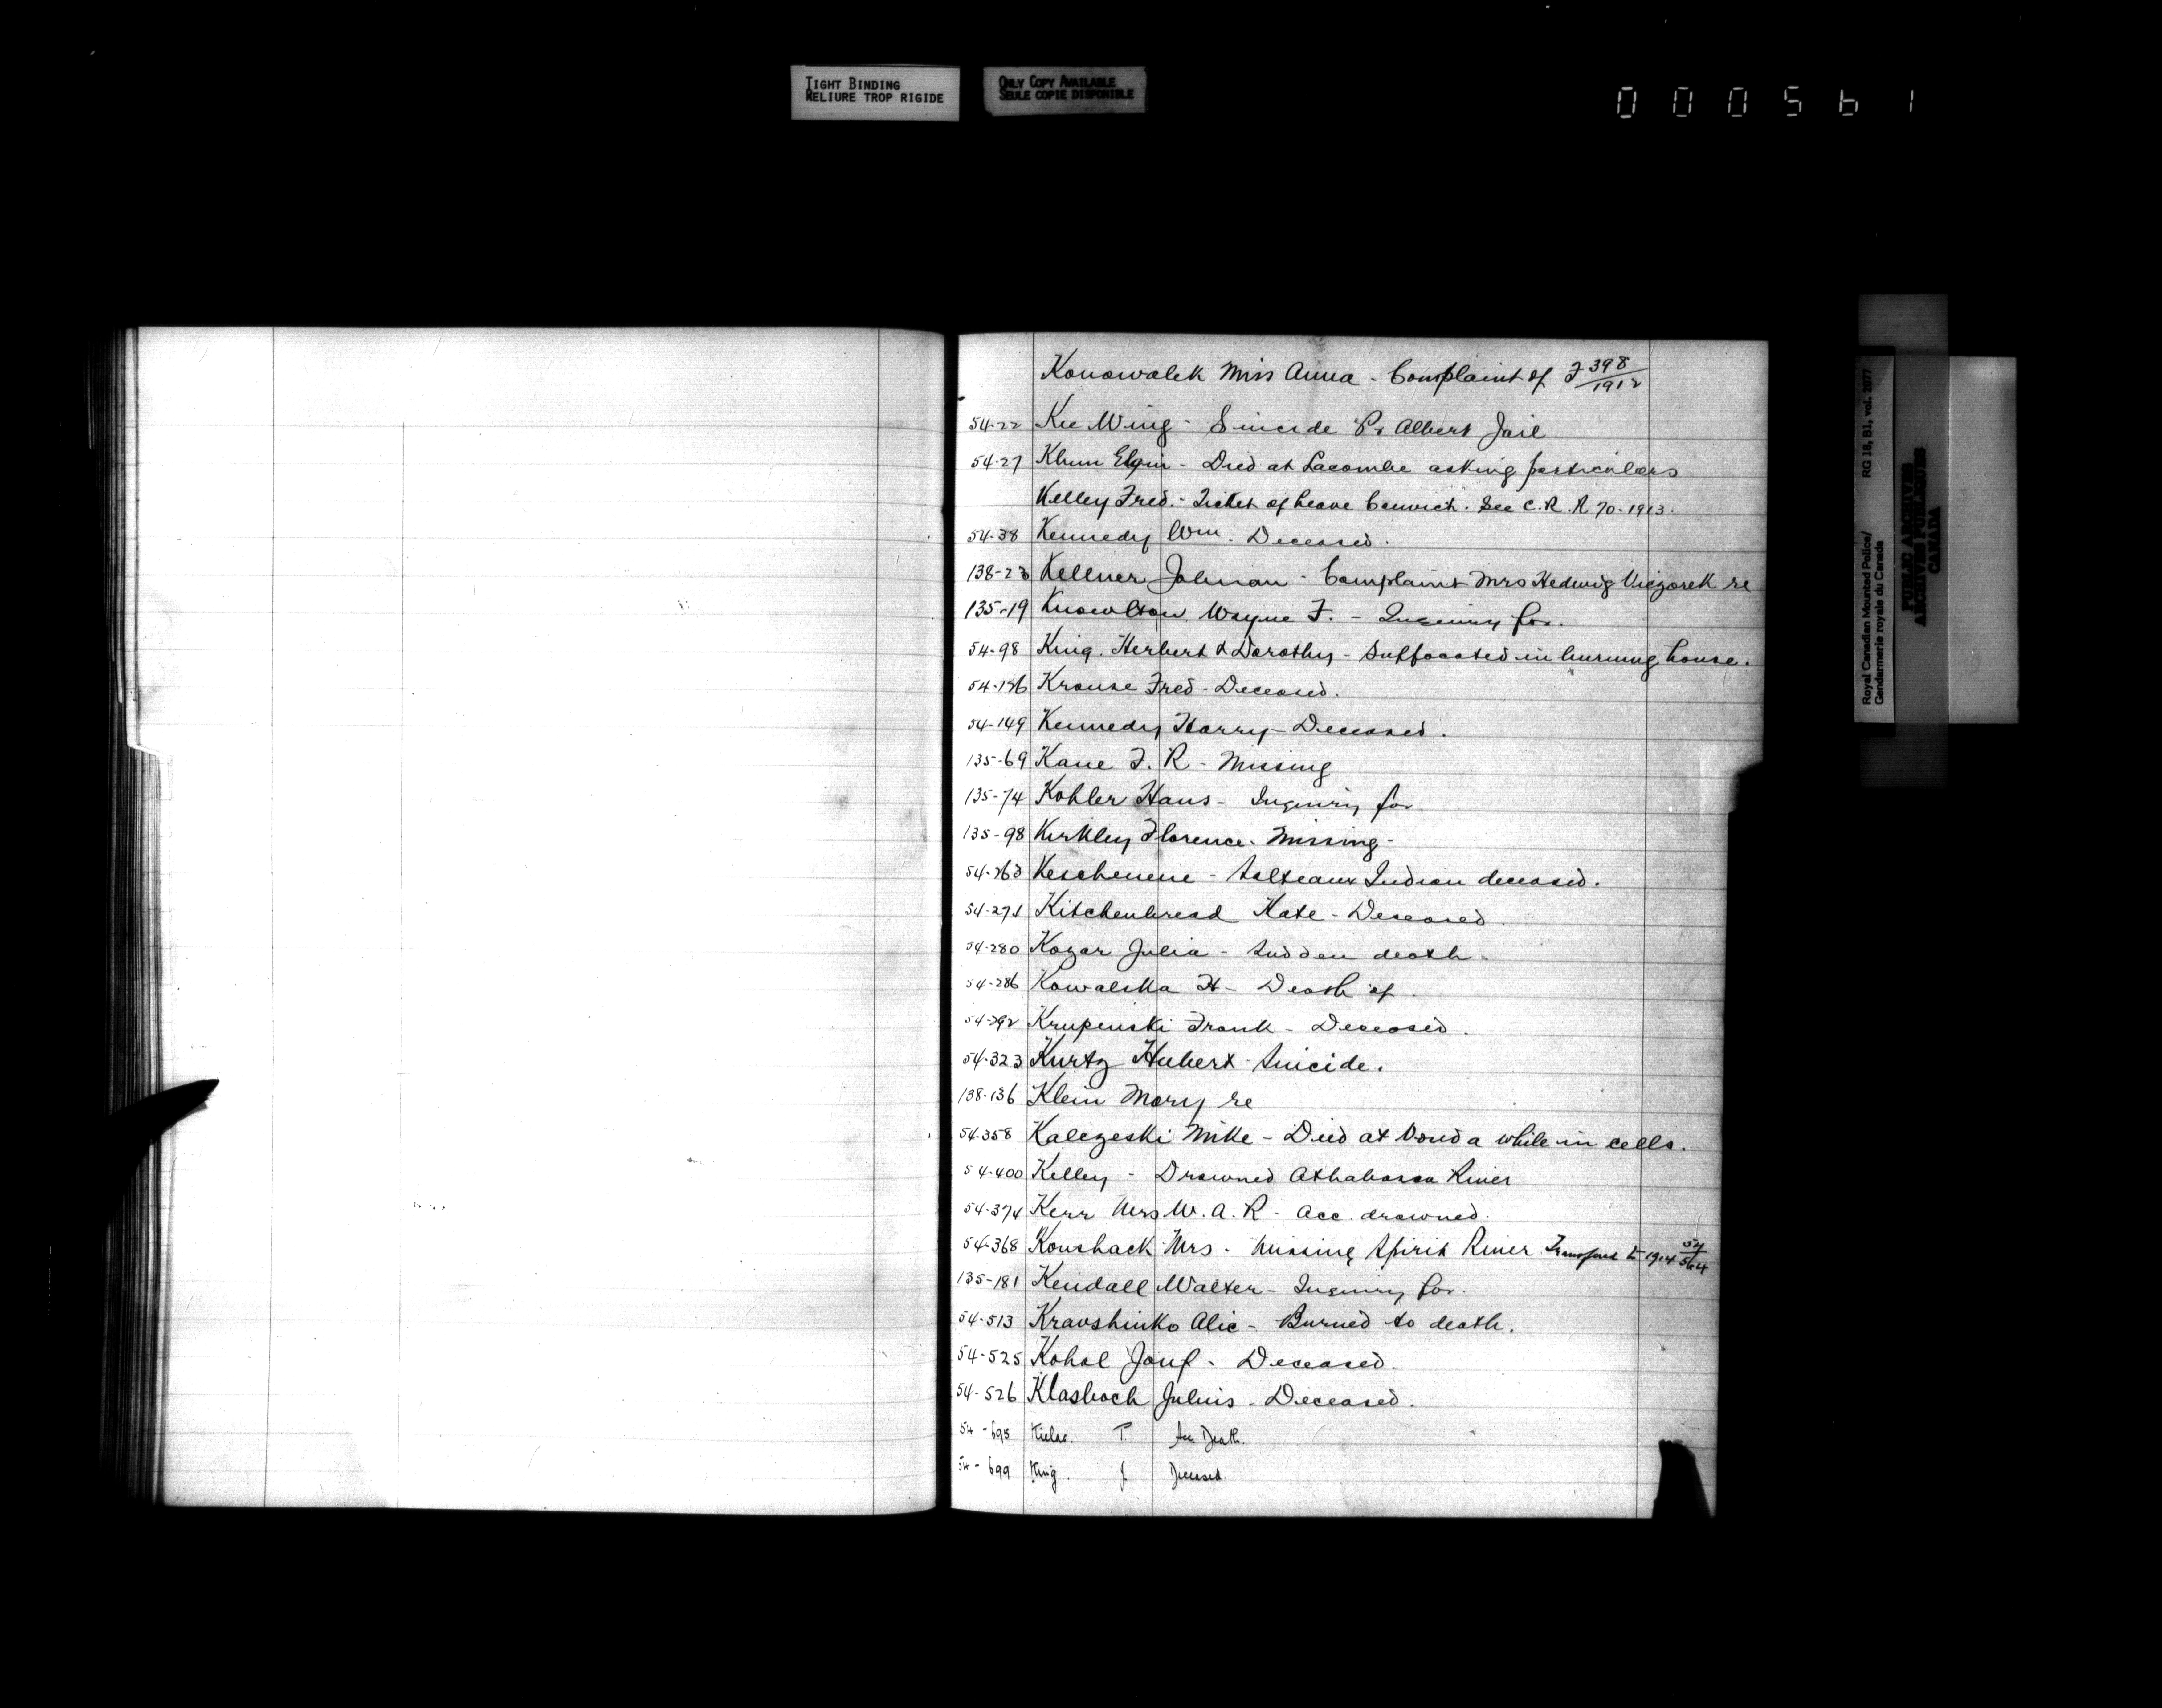 TIGHT BINDING
RELIURE TROP RIGIDE
ONLY COPY AVAILABLE
SEULE COPIE DISPONIBLE
000561
Konowalek Miss Anna - Complaint of F 398/1912
54-22 Kee Wing - Suicide Pr Albert Jail
54-27 Khun Elgin - Died at Lacombe asking particulars
Kelley Fred. - Ticket of Leave Convict. See C.R. R 70-1913.
54-38 Kennedy Wm. Deceased.
138-23 Kellner Johnan - Complaint Mrs Hedwig Viezorek re
135-19 Knowlton Wayne F. - Inquiry for.
54-98 King. Herbert & Dorothy - Suffocated in burning house.
54-186 Krouse Fred - Deceased.
54-149 Kennedy Harry - Deceased.
135-69 Kane F. R - Missing
135-74 Kohler Hans - Inquiry for
135-98 Kirkley Florence. Missing -
54-263 Keschenene - Salteaux Indian deceased.
54-274 Kitchenbread Kate - Deceased.
54-280 Kozar Julia - Sudden death.
54-286 Kowalska H - Death of.
54-292 Krupenski Frank - Deceased.
54-323 Kurtz Hubert - Suicide.
138-136 Klein Mary re
54-358 Kalezeski Mike - Died at Vonda while in cells.
54-400 Kelley - Drowned Athabasca River
54-374 Kerr Mrs W. A. R - Acc. drowned.
54-368 Konshack Mrs. Missing Spirit River Transferred to 1914 54/564
135-181 Kendall Walter - Inquiry for.
54-513 Kravshinko Alic - Burned to death.
54-525 Kohol Josef - Deceased.
54-526 Klasboch Julius - Deceased.
54-695 T. Acc Death.
54-699 King. J. Deceased.
Royal Canadian Mounted Police/ RG 18, B1, vol. 2077
Gendarmerie royale du Canada
PUBLIC ARCHIVES
ARCHIVES PUBLIQUES
CANADA